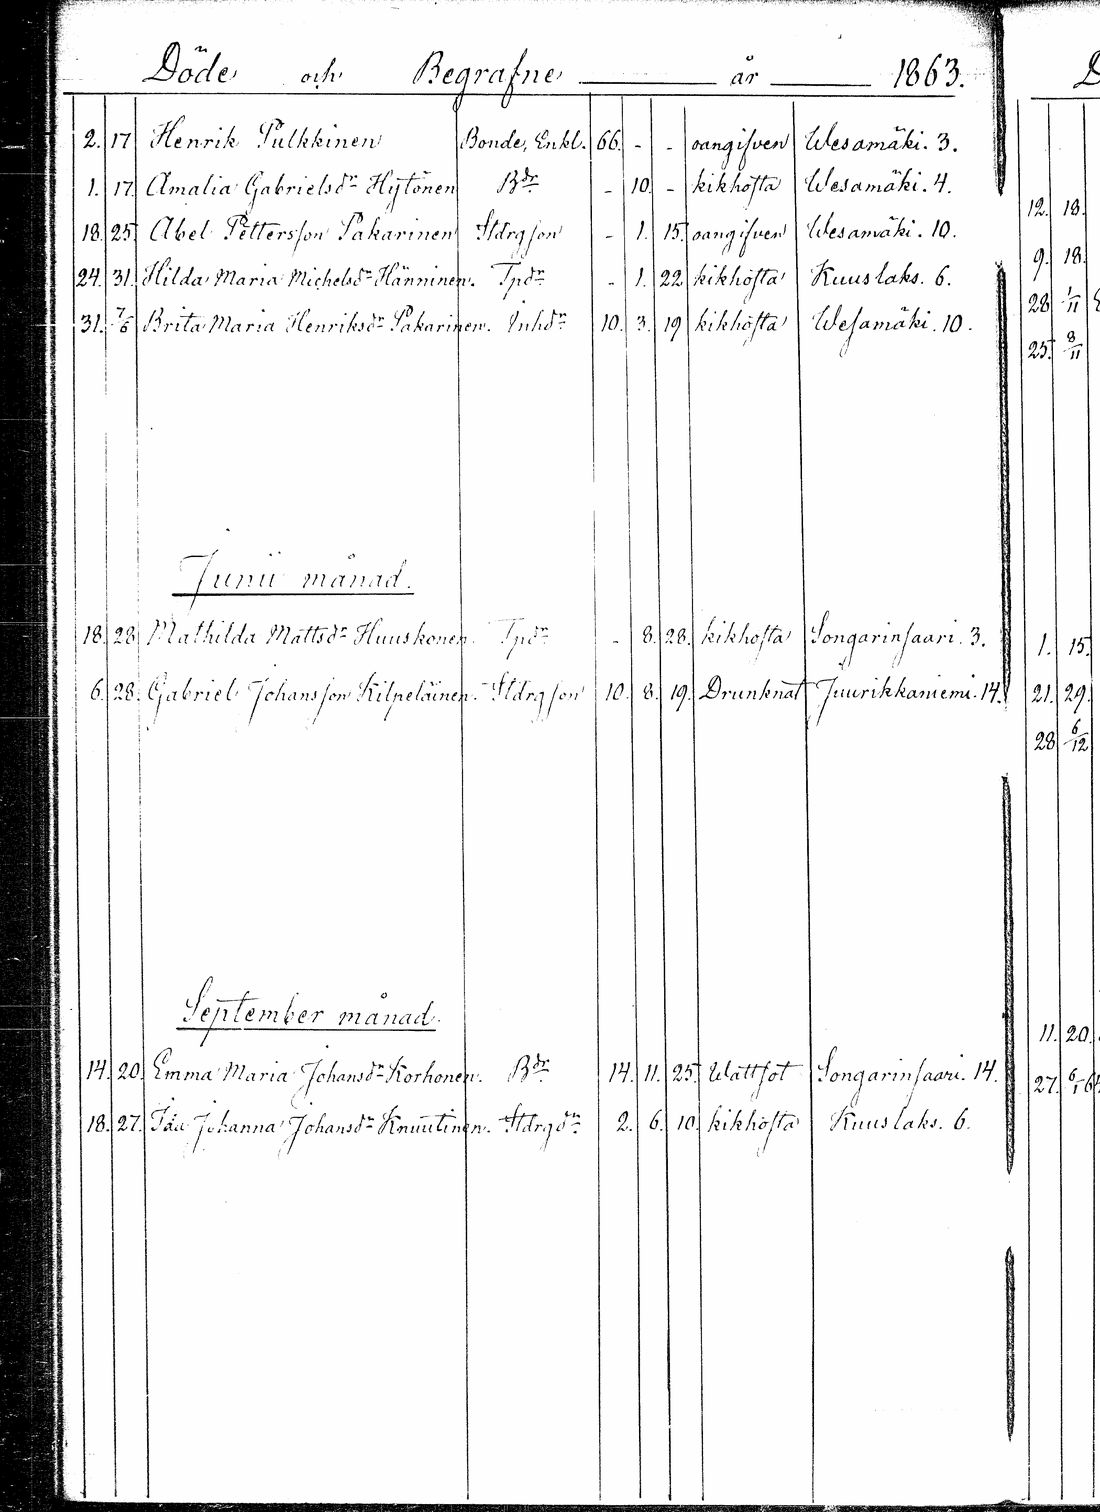 Döde och Begrafne år 1863.
2. 17 Henrik Pulkkinen Bonde, Enkl. 66. - - oangifven Wesamäki. 3.
1. 17. Amalia Gabrielsdr Hytönen Bdr - 10 - kikhosta Wesamäki. 4.
18. 25 Abel Petterssson Pakarinen Stdrgson - 1. 15. oangifven Wesamäki. 10.
24. 31. Hilda Maria Michelsdr Hänninen. Tpdr - 1. 22 kikhosta Kuuslaks. 6.
31. 7/6 Brita Maria Henriksdr Pakarinen. Inhdr 10. 3. 19 kikhosta Wesamäki. 10.
Junii månad.
18. 28 Mathilda Mattsdr Huuskonen. Tpdr - 8. 28. kikhosta Songarinsaari. 3.
6. 28. Gabriel Johansson Kilpeläinen. Stdrgson 10. 8. 19. Drunknat Juurikkaniemi. 14.
September månad.
14. 20. Emma Maria Johansdr Korhonen. Bdr 14. 11. 25. Wattsot Songarinsaari. 14.
18. 27. Ida Johanna Johansdr Knuutinen. Stdrgdr 2. 6. 10. kikhosta Kuuslaks. 6.
12. 18.
9. 18.
28 1/11
25. 8/11
1. 15.
21. 29.
28 6/12
11. 20.
27. 6/1 64